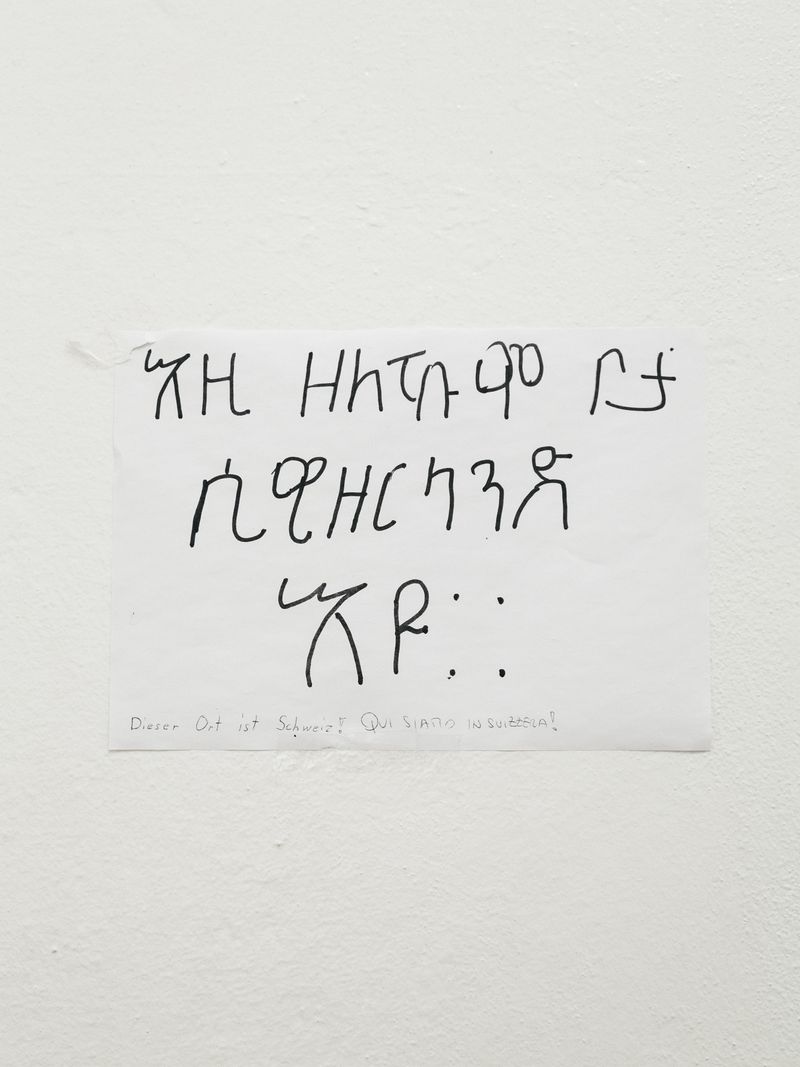 እዚ ቦታ
ሲዊዘርላንድ
እዩ።
Dieser Ort ist Schweiz! QUI SIAMO IN SUIZZERA!